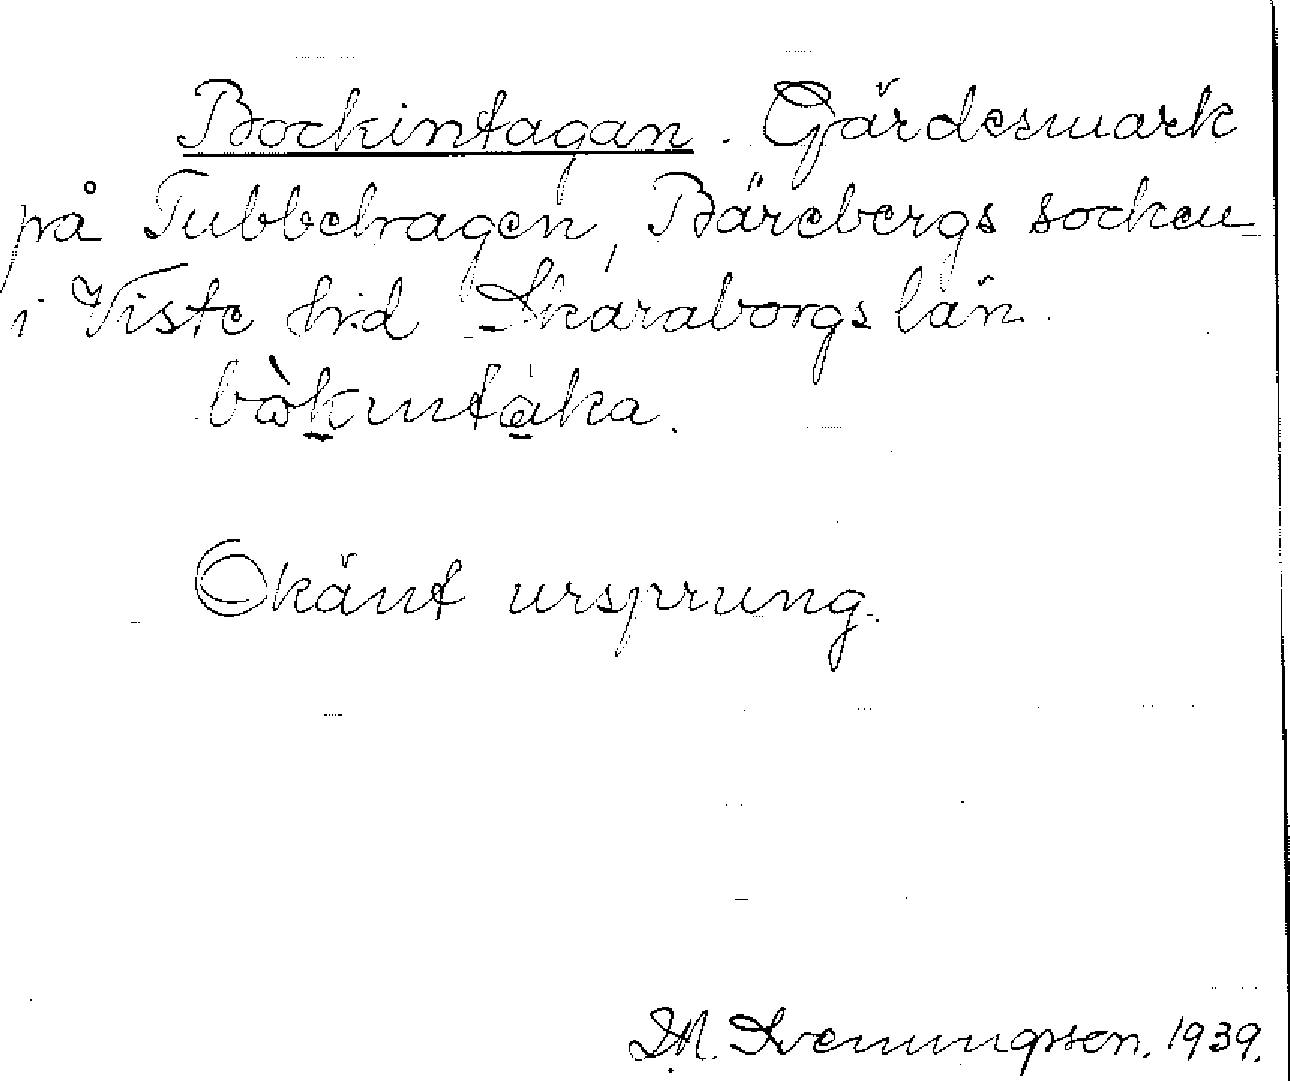 Bockintagan. Gärdesmark
på Tubbehagen, Bärebergs socken
i Viste hd Skaraborgs län.
bòkintàka.
Okänt ursprung.
D.M. Svenungsson. 1939.